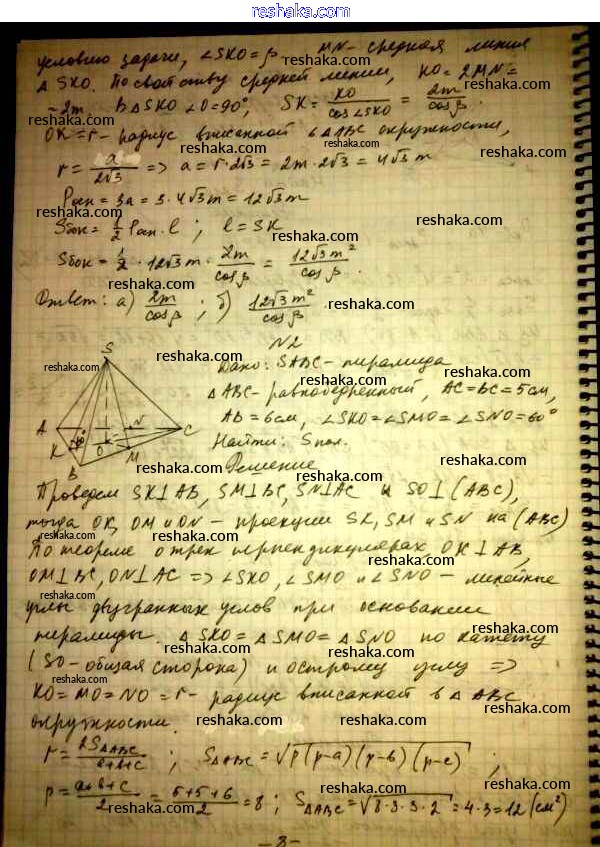 reshaka.com
условию задачи, ∠SKO = β MN - средняя линия
△ SKO. По свойству средней линии, KO = 2MN =
= 2m В △ SKO ∠O = 90°, SK = KO / cos∠SKO = 2m / cosβ
OK = r - радиус вписанной в △ABC окружности,
r = a / 2√3 => a = r·2√3 = 2m·2√3 = 4√3 m
Pосн = 3a = 3·4√3 m = 12√3 m
Sбок = 1/2 Pосн·l ; l = SK
Sбок = 1/2 · 12√3 m · 2m / cosβ = 12√3 m² / cosβ .
Ответ: а) 2m / cosβ ; б) 12√3 m² / cosβ .
N2
Дано: SABC - пирамида
△ ABC - равнобедренный, AC = BC = 5 см,
AB = 6 см, ∠SKO = ∠SMO = ∠SNO = 60°
Найти: Sпол.
Решение
S
A
K
B
O
M
N
C
60°
Проведем SK⊥AB, SM⊥BC, SN⊥AC и SO⊥(ABC),
тогда OK, OM и ON - проекции SK, SM и SN на (ABC)
По теореме о трех перпендикулярах OK⊥AB,
OM⊥BC, ON⊥AC => ∠SKO, ∠SMO и ∠SNO - линейные
углы двугранных углов при основании
пирамиды. △ SKO = △ SMO = △ SNO по катету
(SO - общая сторона) и острому углу =>
KO = MO = NO = r - радиус вписанной в △ ABC
окружности.
r = 2S△ABC / a+b+c ; S△ABC = √p(p-a)(p-b)(p-c) ;
p = a+b+c / 2 = 5+5+6 / 2 = 8 ; S△ABC = √8·3·3·2 = 4·3 = 12 (см²)
- 8 -